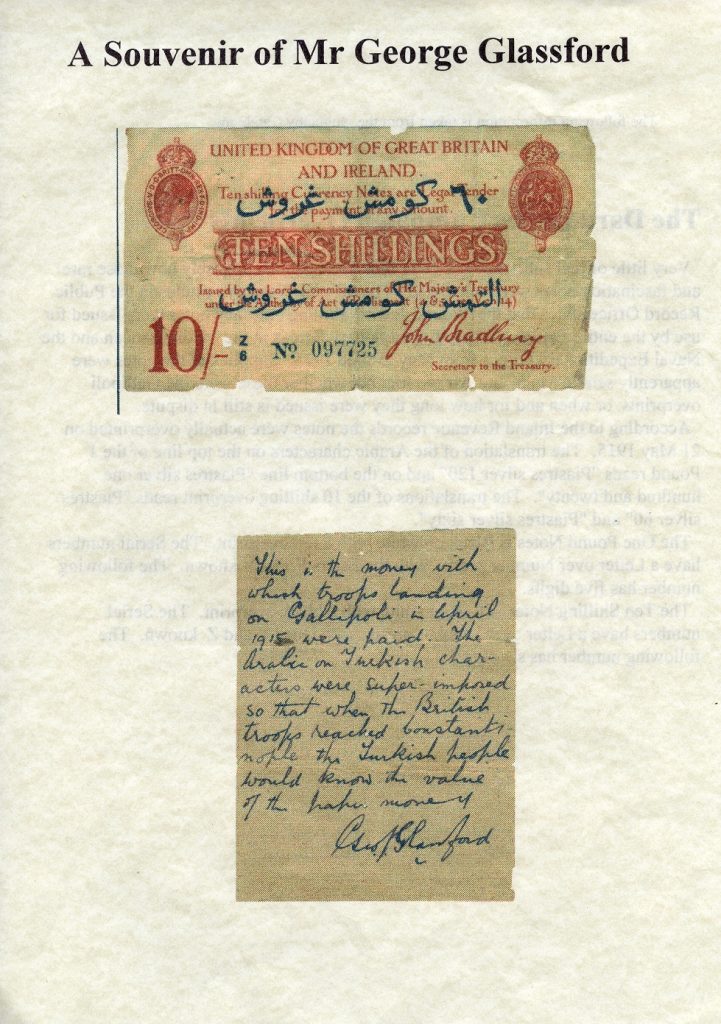 A Souvenir of Mr George Glassford
UNITED KINGDOM OF GREAT BRITAIN
AND IRELAND
Ten shilling Currency Notes are Legal Tender
٦٠ كومش غروش
for the payment of any amount.
TEN SHILLINGS
Issued by the Lords Commissioners of His Majesty's Treasury
التمش كومش غروش
under the Authority of Act of Parliament (4 & 5 14)
10/- Z 6 No 097725 John Bradbury
Secretary to the Treasury.
This is the money with
which troops landing
on Gallipoli in April
1915 were paid. The
Arabic or Turkish char-
acters were super-imposed
so that when the British
troops reached Constanti-
nople the Turkish people
would know the value
of the paper money
Geo. Glassford